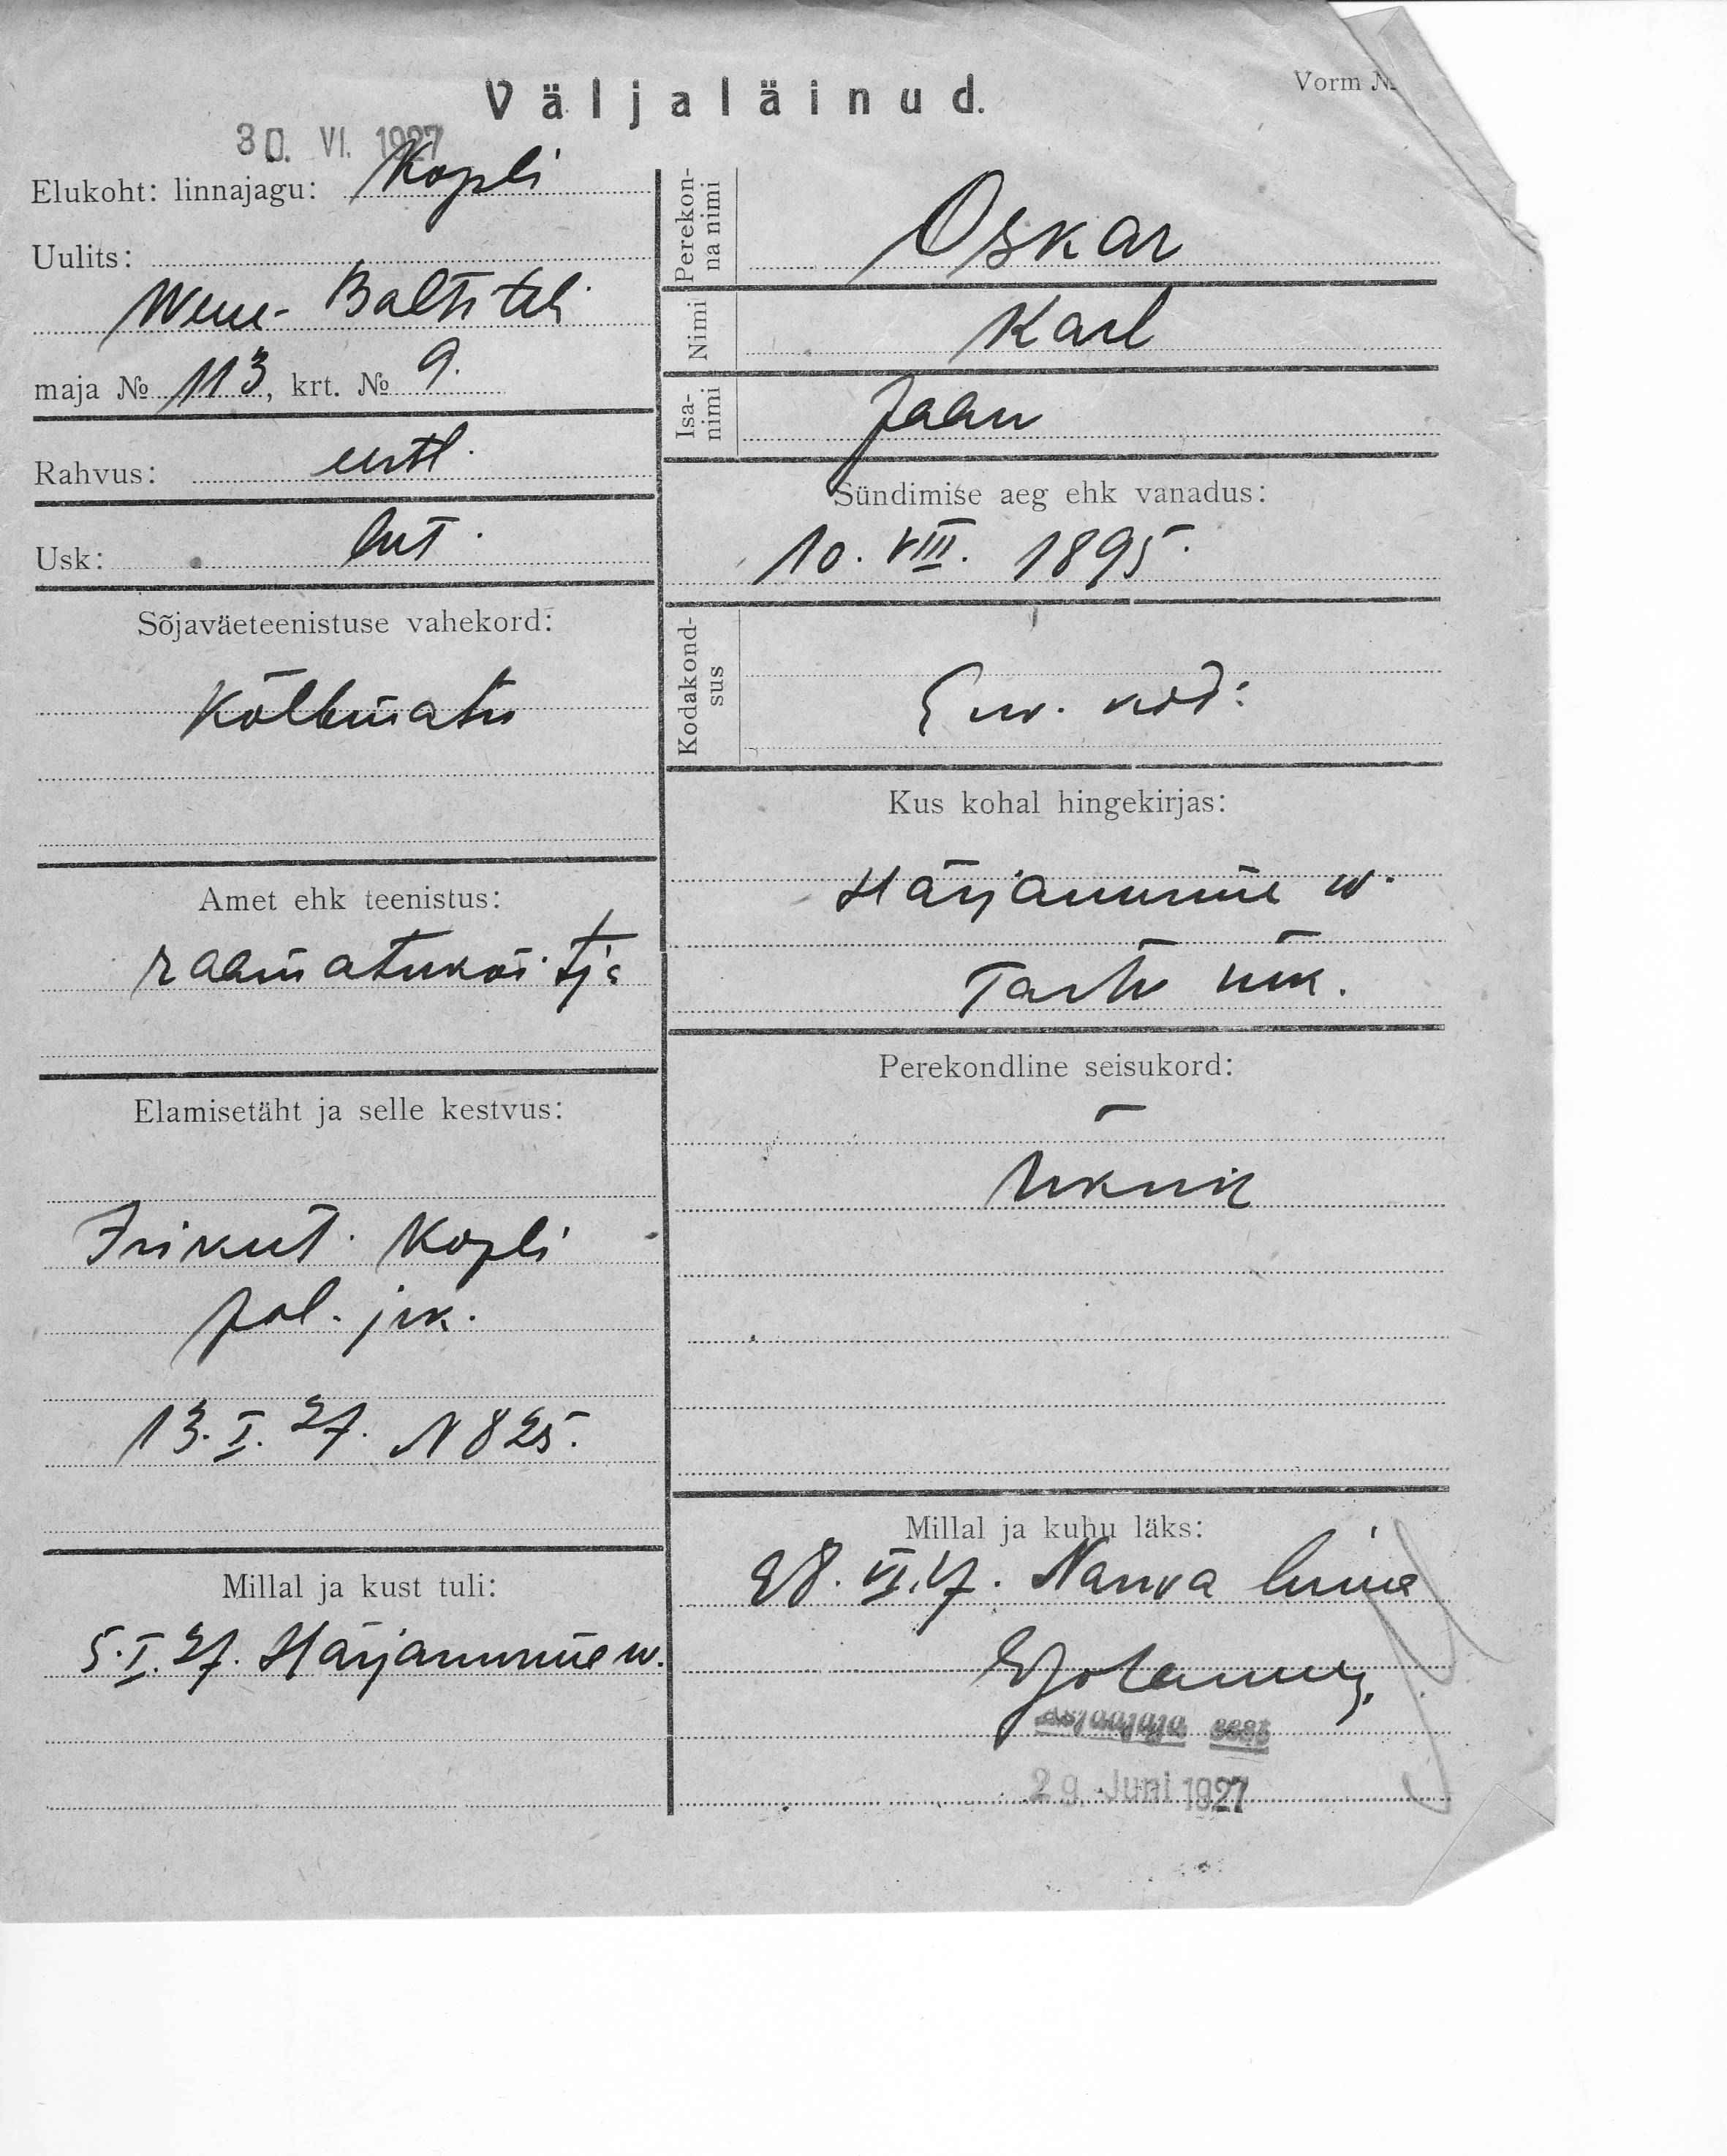 Vorm №
Väljaläinud.
30. VI. 1927
Elukoht: linnajagu: Kopli
Uulits:
Wene-Balti teh
maja № 113, krt. № 9.
Rahvus: eestl.
Usk: lut.
Sõjaväeteenistuse vahekord:
Kõlbmatu
Amet ehk teenistus:
raamatuköitja
Elamisetäht ja selle kestvus:
Isikut. Kopli
pol. jsk.
13. I. 27. N 825.
Millal ja kust tuli:
5. I. 27. Härjanurme w.
Perekon-
na nimi
Oskar
Nimi
Karl
Isa-
nimi
Jaan
Sündimise aeg ehk vanadus:
10. VIII. 1895.
Kodakond-
sus
E. w. kod:
Kus kohal hingekirjas:
Härjanurme w.
Tartu mk.
Perekondline seisukord:
Üksik
Millal ja kuhu läks:
28. VI. 27. Narva linna
Asjaajaja eest
29. Juni 1927